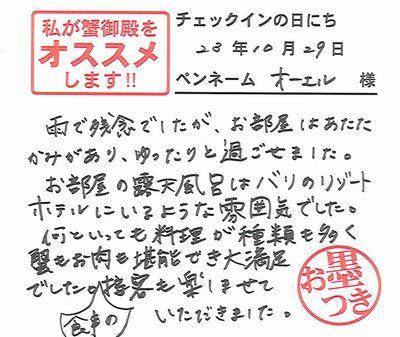 私が蟹御殿を
オススメ
します!!
チェックインの日にち
23年10月29日
ペンネーム オーエル 様
雨で残念でしたが、お部屋はあたた
かみがあり、ゆったりと過ごせました。
お部屋の露天風呂はバリのリゾート
ホテルにいるような雰囲気でした。
何といっても料理が種類も多く
蟹もお肉も堪能でき大満足
でした。接客も楽しませて
食事の
いただきました。
お墨つき